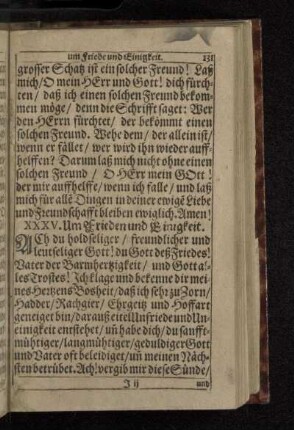 um Friede und Einigkeit. 131
grosser Schatz ist ein solcher Freund! Laß
mich/ O mein HErr und Gott! dich fürch-
ten/ daß ich einen solchen Freund bekom-
men möge/ denn die Schrifft saget: Wer
den HErrn fürchtet/ der bekömmt einen
solchen Freund. Wehe dem/ der allein ist/
wenn er fället/ wer wird ihn wieder auff-
helffen? Darum laß mich nicht ohne einen
solchen Freund/ O HErr mein GOtt!
der mir auffhelffe/ wenn ich falle/ und laß
mich für alle Dingen in deiner ewigē Liebe
und Freundschafft bleiben ewiglich. Amen!
XXXV. Um Frieden und Einigkeit.
ACh du holdseliger/ freundlicher und
leutseliger Gott! du Gott deß Friedes!
Vater der Barmhertzigkeit/ und Gott al-
les Trostes! Ich klage und bekenne dir mei-
nes Hertzens Bosheit/ daß ich sehr zu Zorn/
Hadder/ Rachgier/ Ehrgeitz und Hoffart
geneiget bin/ darauß eitel Unfriede und Un-
einigkeit entstehet/ uñ habe dich/ du sanfft-
mühtiger/ langmühtiger/ geduldiger Gott
und Vater oft beleidiget/ uñ meinen Näch-
sten betrübet. Ach! vergib mir diese Sünde/
J ij und